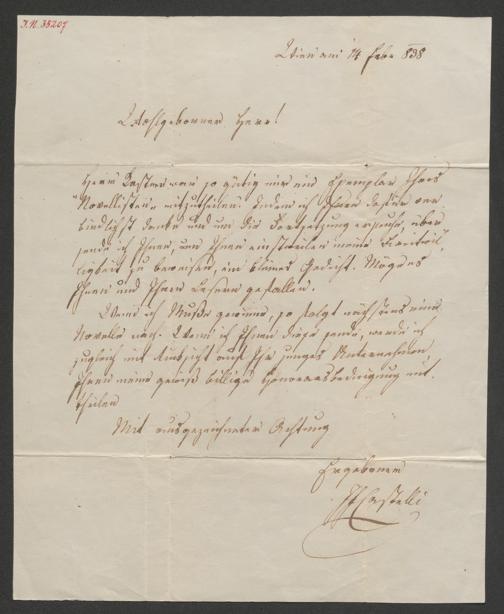 I.N. 38207
Wien am 14 Febr 838
Wohlgeborner Herr!
Herr war so gütig mir ein Exemplar Ihres
Novellisten mitzutheilen. Indem ich Ihnen dafür ver
bindlichst danke und um die Fortsetzung ersuche, über
sende ich Ihnen, um Ihnen einstweilen meine Bereitwil
ligkeit zu beweisen, ein kleines Gedicht. Möge es
Ihnen und Ihren Lesern gefallen.
Wenn ich Muße gewinne, so folgt nächstens eine
Novelle nach. Wenn ich Ihnen diese sende, werde ich
zugleich mit Rücksicht auf Ihr junges Unternehmen,
Ihnen meine gewiß billige Honorarsbedingung mit
theilen
Mit ausgezeichneter Achtung
Ergebener
Castelli